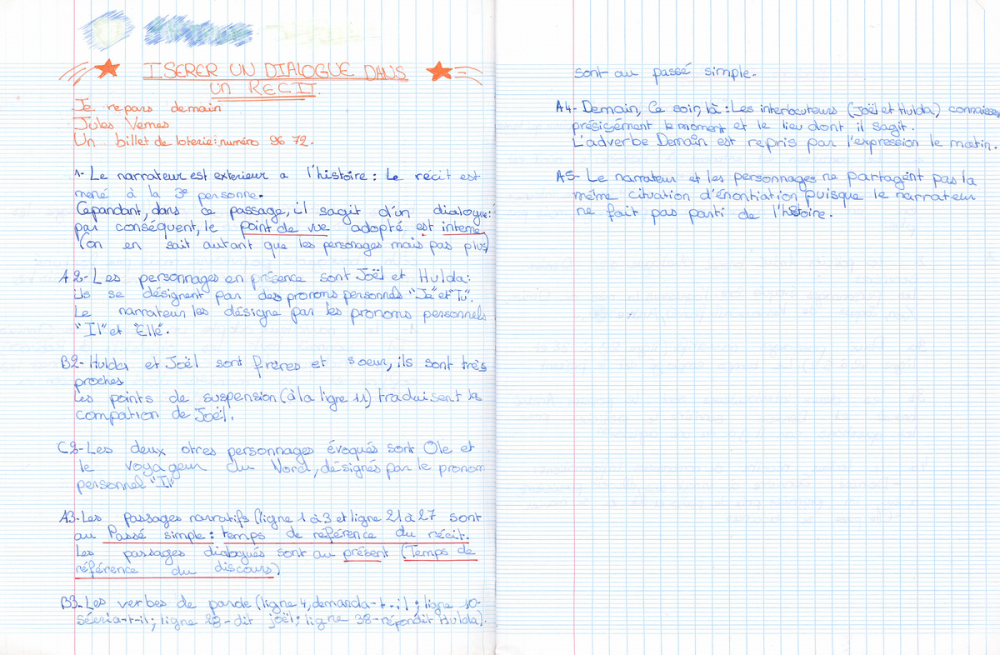 ISERER UN DIALOGUE DANS
UN RECIT.
Je repars demain
Jules Vernes
Un billet de loterie: numéro 96 72.
1- Le narrateur est exterieur a l'histoire : Le récit est
mené à la 3e personne.
Cepandant, dans ce passage, il sagit d'un dialogue:
par conséquent, le point de vue adopté est interne
(on en sait autant que les personages mais pas plus)
A2- Les personnages en présence sont Joël et Hulda:
ils se désignent par des pronoms personnels "Je" et "Tu".
Le narrateur les désigne par les pronoms personnels
"Il" et "Elle".
B2- Hulda et Joël sont frères et soeur, ils sont très
proches
Les points de suspension (à la ligne 11) traduisent la
compation de Joël.
C2- Les deux otres personnages évoqués sont Ole et
le voyageur du Nord, désignés par le pronom
personnel "Il"
A3- Les passages narratifs (ligne 1 à 3 et ligne 21 à 27 sont
au Passé simple : temps de référence du récit.
Les passages dialogués sont au présent (Temps de
référence du discours)
B3- Les verbes de parole (ligne 4, demanda-t-il ; ligne 10-
séeria-t-il; ligne 28- dit joël; ligne 38- répondit Hulda).
sont au passé simple.
A4- Demain, Ce soir, là : Les interlocuteurs (Joël et Hulda) connaisse
présigément le moment et le lieu dont il sagit.
L'adverbe Demain est repris par l'expression le matin.
A5- Le narrateur et les personnages ne partagint pas la
même cituation d'énontiation puisque le narrateur
ne fait pas parti de l'histoire.